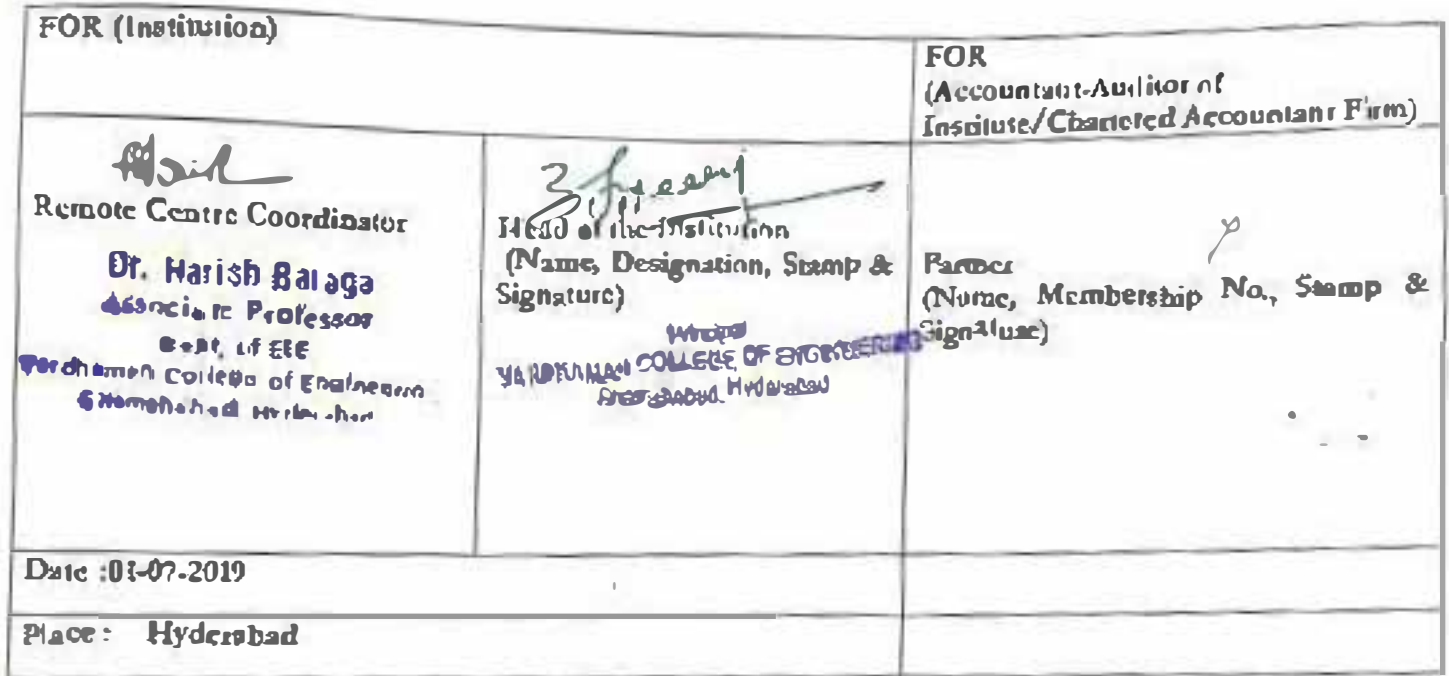 FOR (Institution)
FOR
(Accountant-Auditor of
Institute/Chartered Accountant Firm)
Remote Centre Coordinator
Dr. Harish Balaga
Associate Professor
Dept. of EEE
Vardhaman College of Engineering
Shamshabad Hyderabad
Head of the Institution
(Name, Designation, Stamp &
Signature)
Principal
VARDHAMAN COLLEGE OF ENGINEERING
Shamshabad, Hyderabad
Partner
(Name, Membership No., Stamp &
Signature)
Date :03-07-2019
Place: Hyderabad